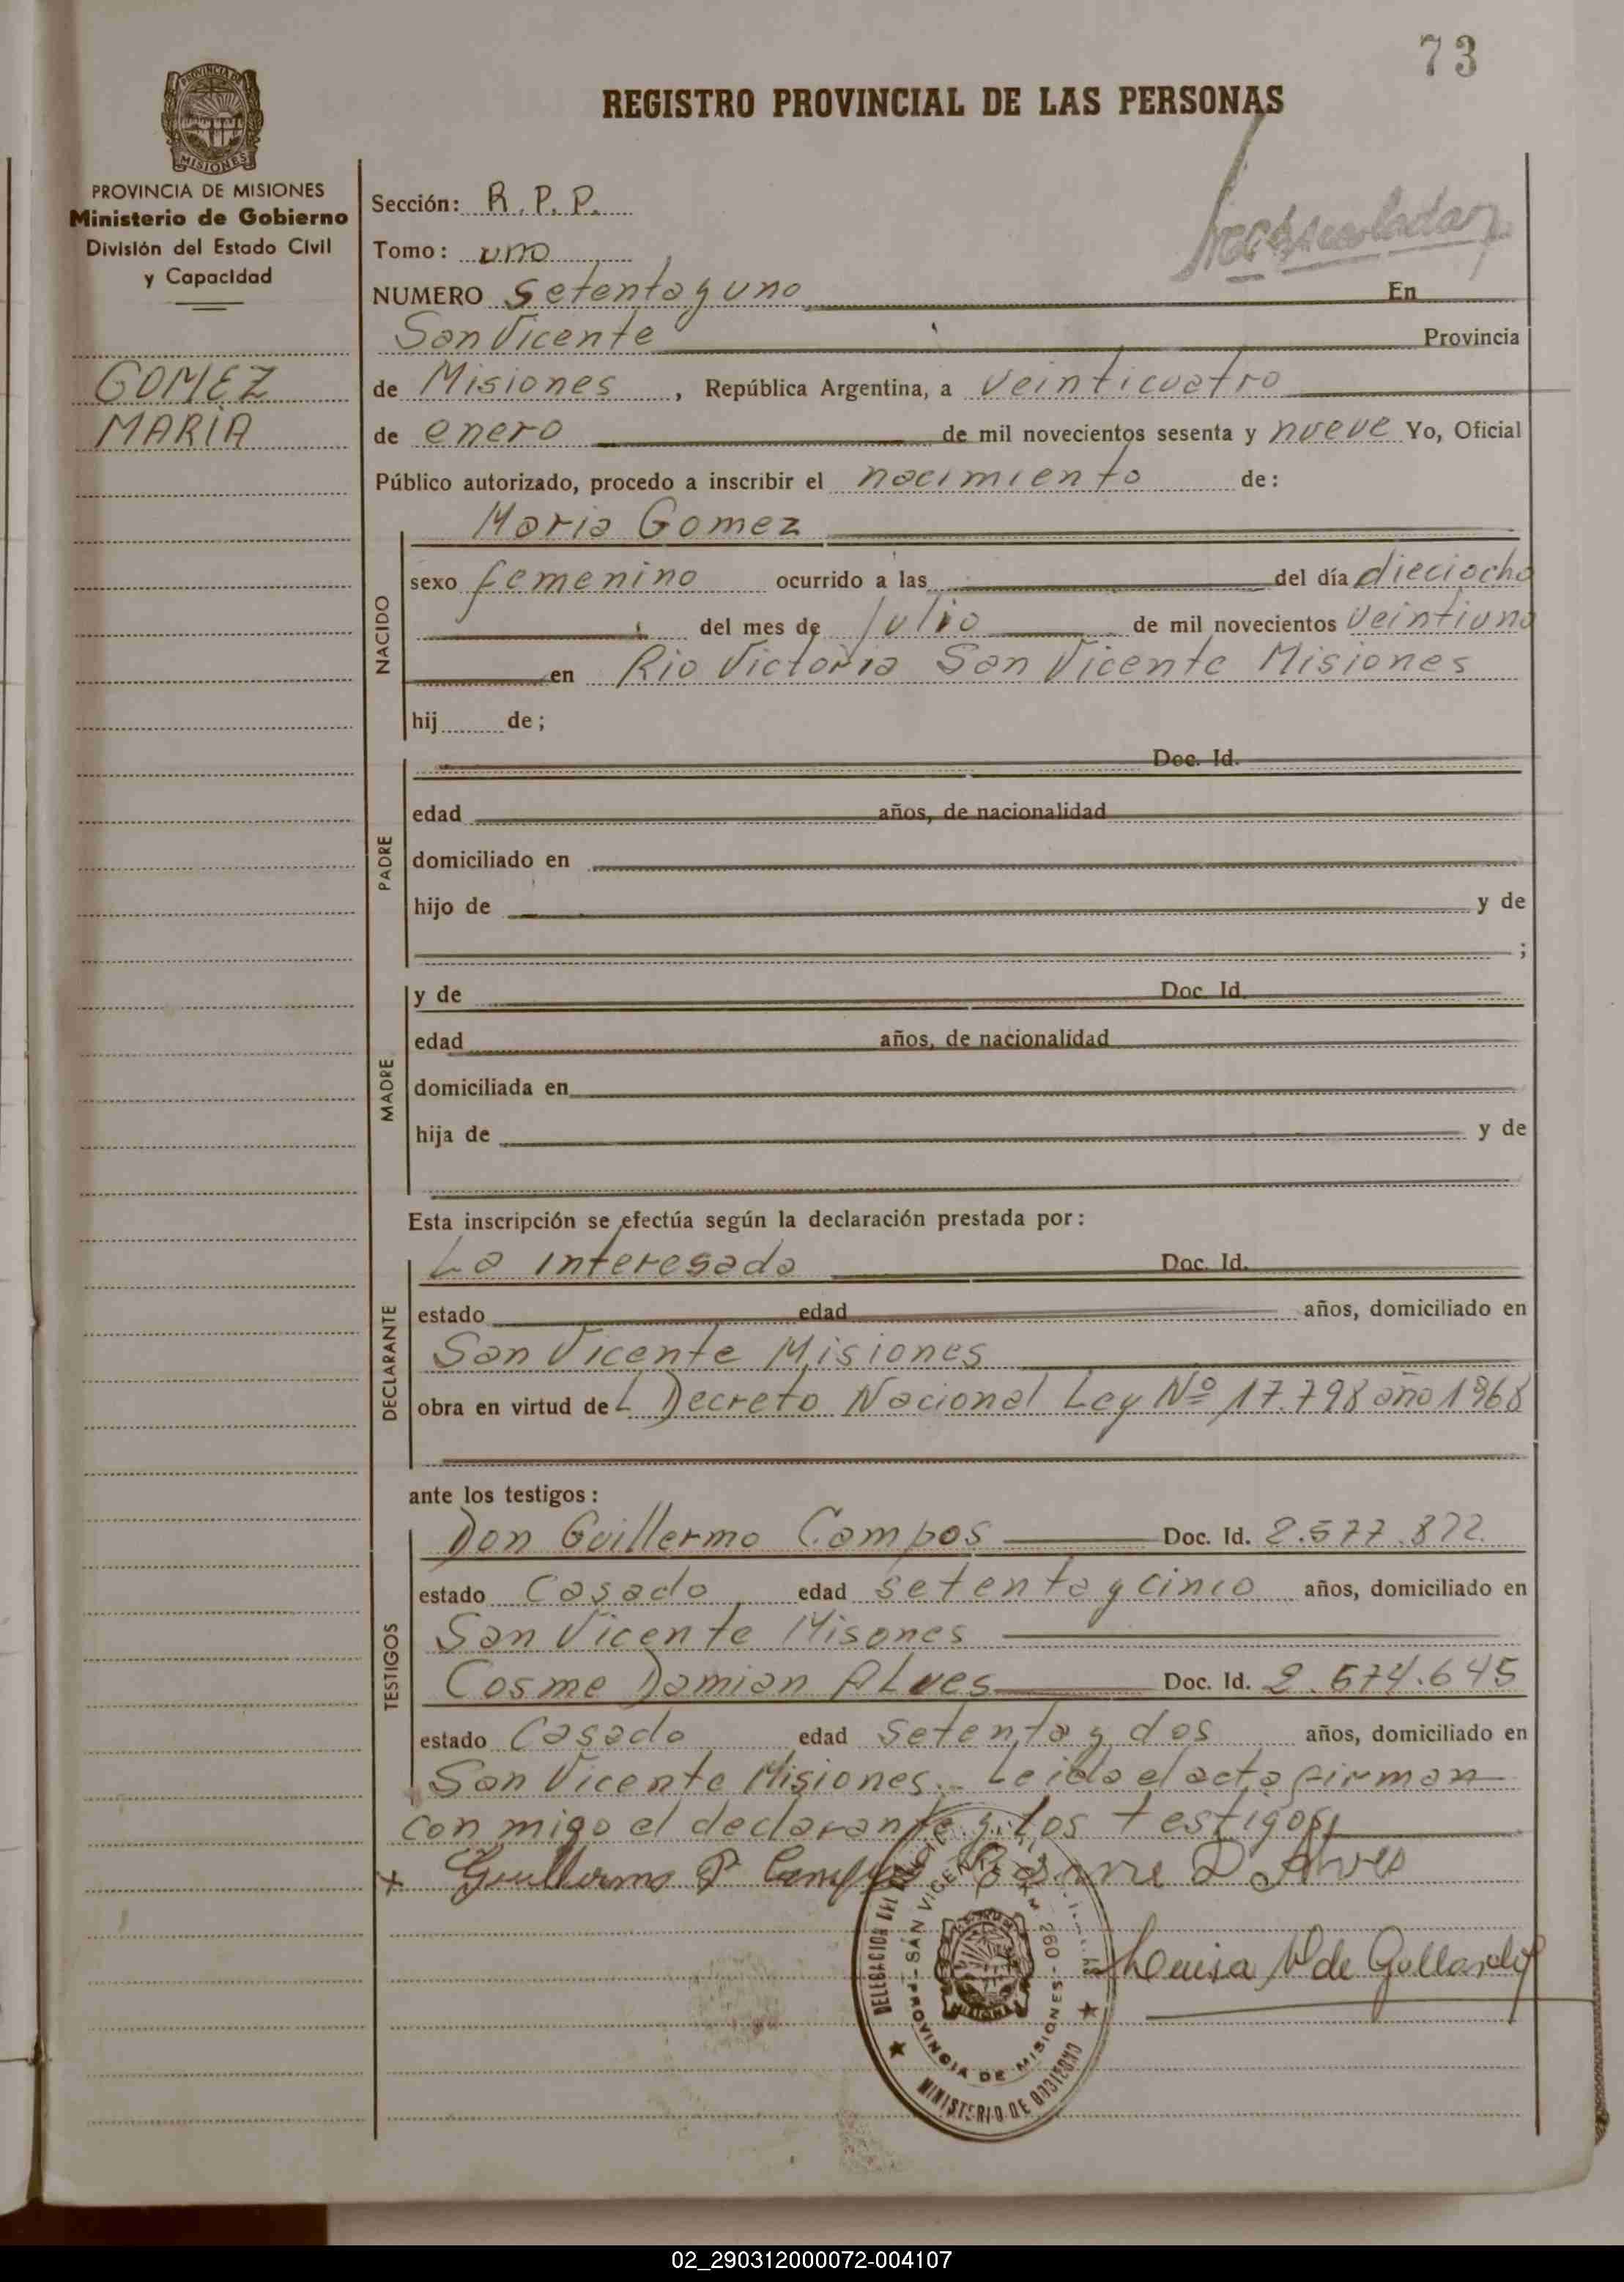 73
REGISTRO PROVINCIAL DE LAS PERSONAS
PROVINCIA DE MISIONES
MISIONES
PROVINCIA DE MISIONES
Ministerio de Gobierno
División del Estado Civil
y Capacidad
GOMEZ
MARIA
Sección: R.P.P.
Tomo: uno
NUMERO setenta y uno En
San Vicente Provincia
de Misiones, República Argentina, a veinticuatro
de enero de mil novecientos sesenta y nueve Yo, Oficial
Público autorizado, procedo a inscribir el nacimiento de:
NACIDO
Maria Gomez
sexo femenino ocurrido a las del día dieciocho
del mes de Julio de mil novecientos veintiuno
en Rio Victoria San Vicente Misiones
hij de;
PADRE
Doc. Id.
edad años, de nacionalidad
domiciliado en
hijo de y de
;
MADRE
y de Doc. Id.
edad años, de nacionalidad
domiciliada en
hija de y de
Esta inscripción se efectúa según la declaración prestada por:
DECLARANTE
La interesada Doc. Id.
estado edad años, domiciliado en
San Vicente Misiones
obra en virtud del Decreto Nacional Ley Nº 17.798 año 1968
ante los testigos:
TESTIGOS
Don Guillermo Campos Doc. Id. 2.577.872
estado Casado edad setenta y cinco años, domiciliado en
San Vicente Misones
Cosme Damian ALves Doc. Id. 2.574.645
estado Casado edad setenta y dos años, domiciliado en
San Vicente Misiones.- Leida el acta firman
con migo el declarante y los testigos
Guillermo P Campos Cosme D Alves
SAN VICENTE KM. 260 - PROVINCIA DE MISIONES
MINISTERIO DE GOBIERNO
de Gallardo
02_290312000072-004107